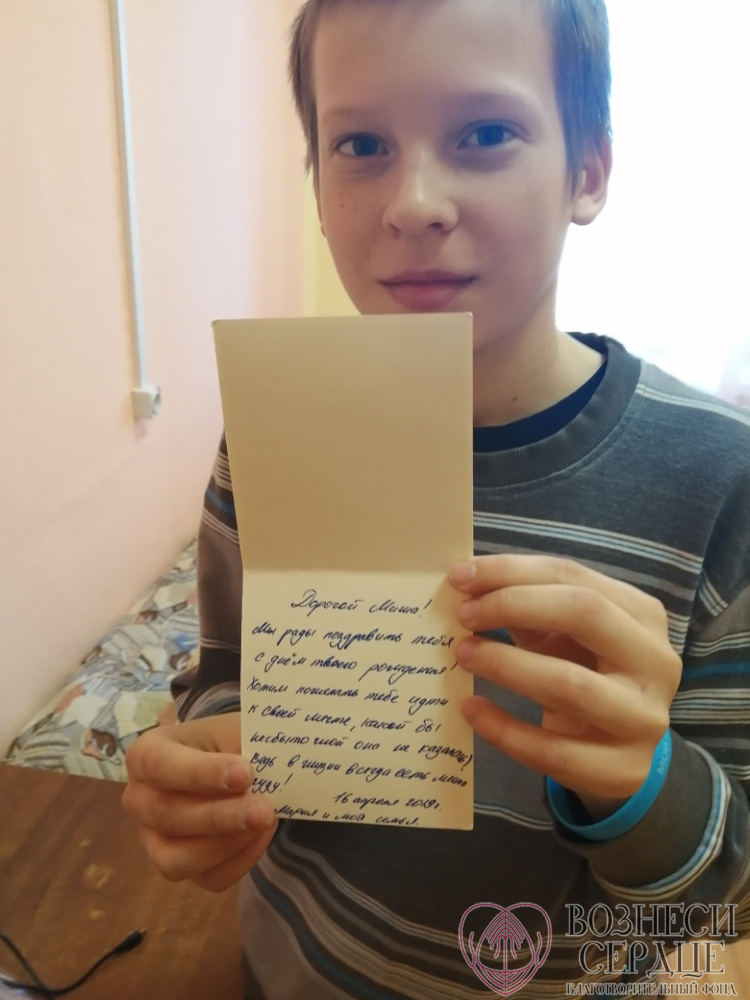 Дорогой Миша!
Мы рады поздравить тебя
с днём твоего рождения!
Хотим пожелать тебе идти
к своей мечте, какой бы
несбыточной она не казалась)
Ведь в жизни всегда есть место
чуду!
16 апреля 2019г.
Мария и моя семья.
ВОЗНЕСИ
СЕРДЦЕ
БЛАГОТВОРИТЕЛЬНЫЙ ФОНД